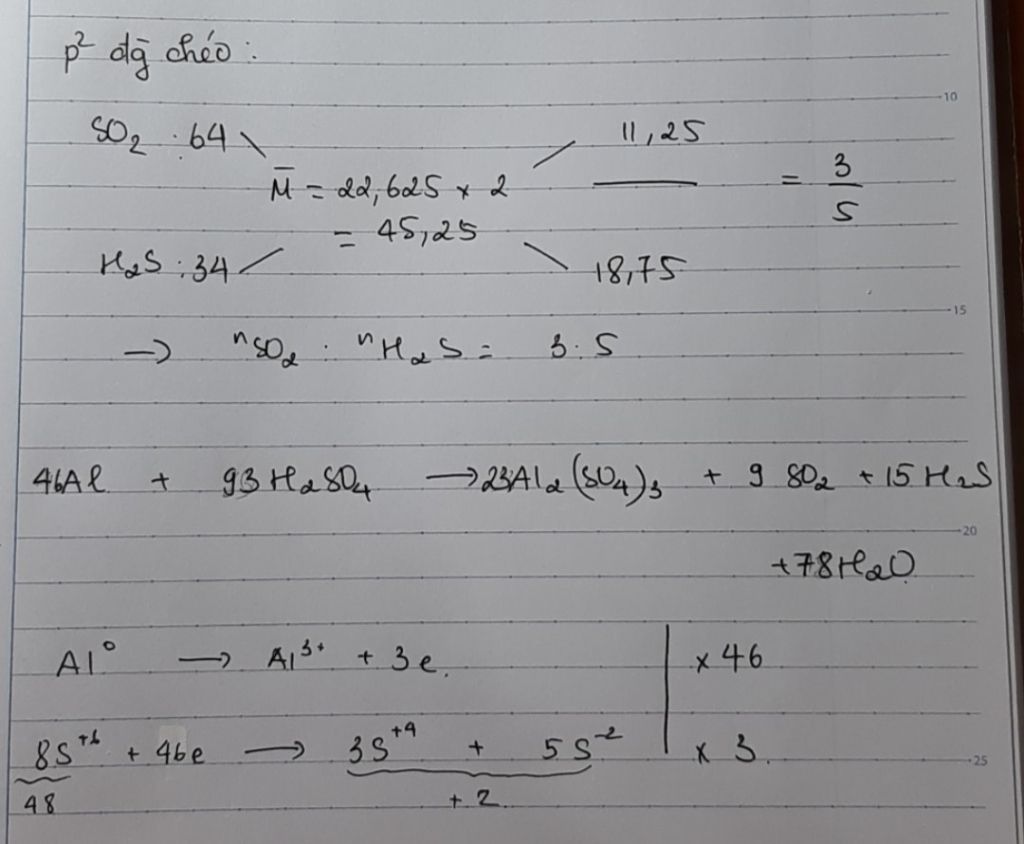 p² đg chéo :
SO₂ : 64 11,25
M̄ = 22,625 x 2 = 3/5
= 45,25
H₂S : 34 18,75
→ nSO₂ : nH₂S = 3 : 5
46Al + 93H₂SO₄ → 23Al₂(SO₄)₃ + 9 SO₂ + 15 H₂S
+78H₂O
Al⁰ → Al³⁺ + 3e. x 46
8S⁺⁶ + 46e → 3S⁺⁴ + 5S⁻² x 3.
48 + 2
10
15
20
25